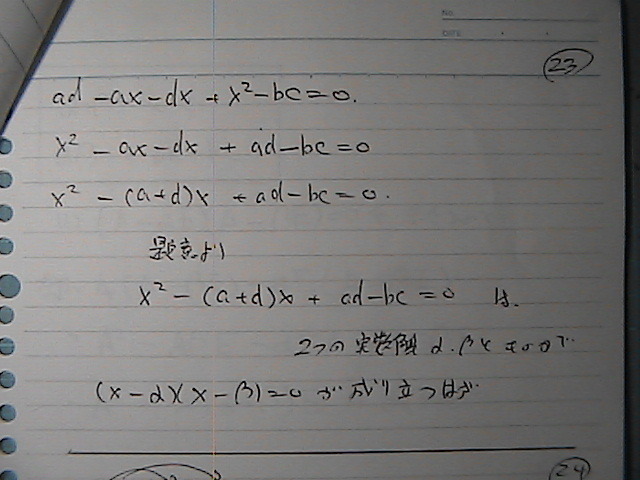 NO.
DATE
23
ad - ax - dx + x² - bc = 0.
x² - ax - dx + ad - bc = 0
x² - (a+d)x + ad - bc = 0.
題意より
x² - (a+d)x + ad - bc = 0 は.
2つの実数解 α.βをもつので
(x - α)(x - β) = 0 が成り立つはず
24